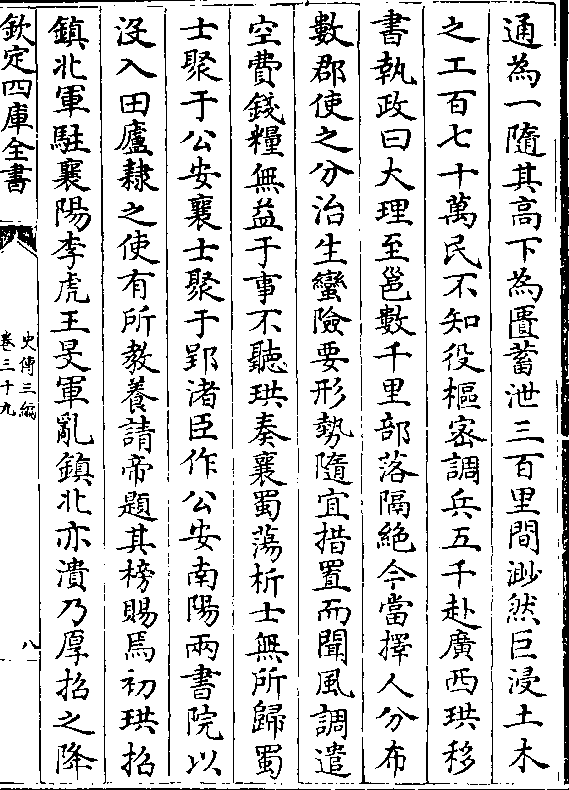 通為一隨其高下為匱蓄泄三百里間渺然巨浸土木
之工百七十萬民不知役樞密調兵五千赴廣西珙移
書執政曰大理至邕數千里部落隔絶今當擇人分布
數郡使之分治生蠻險要形勢隨宜措置而聞風調遣
空費錢糧無益于事不聽珙奏襄蜀蕩析士無所歸蜀
士聚于公安襄士聚于郢渚臣作公安南陽兩書院以
沒入田廬隷之使有所教養請帝題其榜賜焉初珙招
鎮北軍駐襄陽李虎王旻軍亂鎮北亦潰乃厚招之降
欽定四庫全書
史傳三編
卷三十九
八